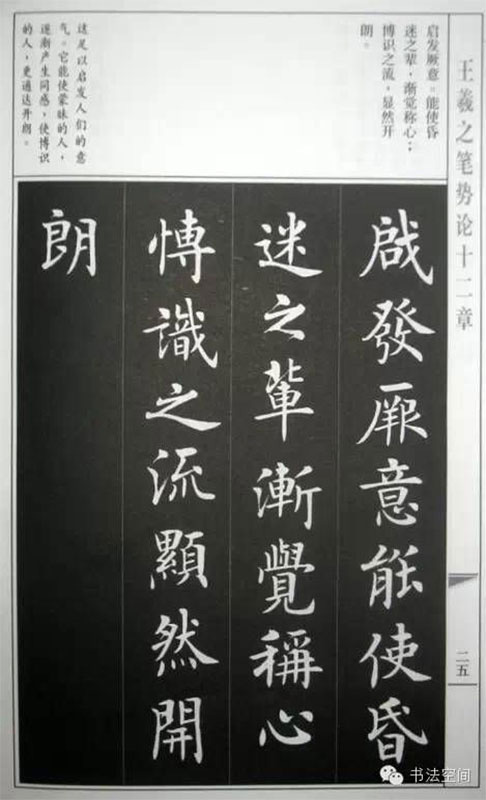 王羲之笔势论十二章
二五
启发厥意。能使昏
迷之辈，渐觉称心；
博识之流，显然开
朗。
这足以启发人们的意
气。它能使蒙昧的人，
逐渐产生同感，使博识
的人，更通达开朗。
啟發厥意能使昏
迷之輩漸覺稱心
博識之流顯然開
朗
书法空间